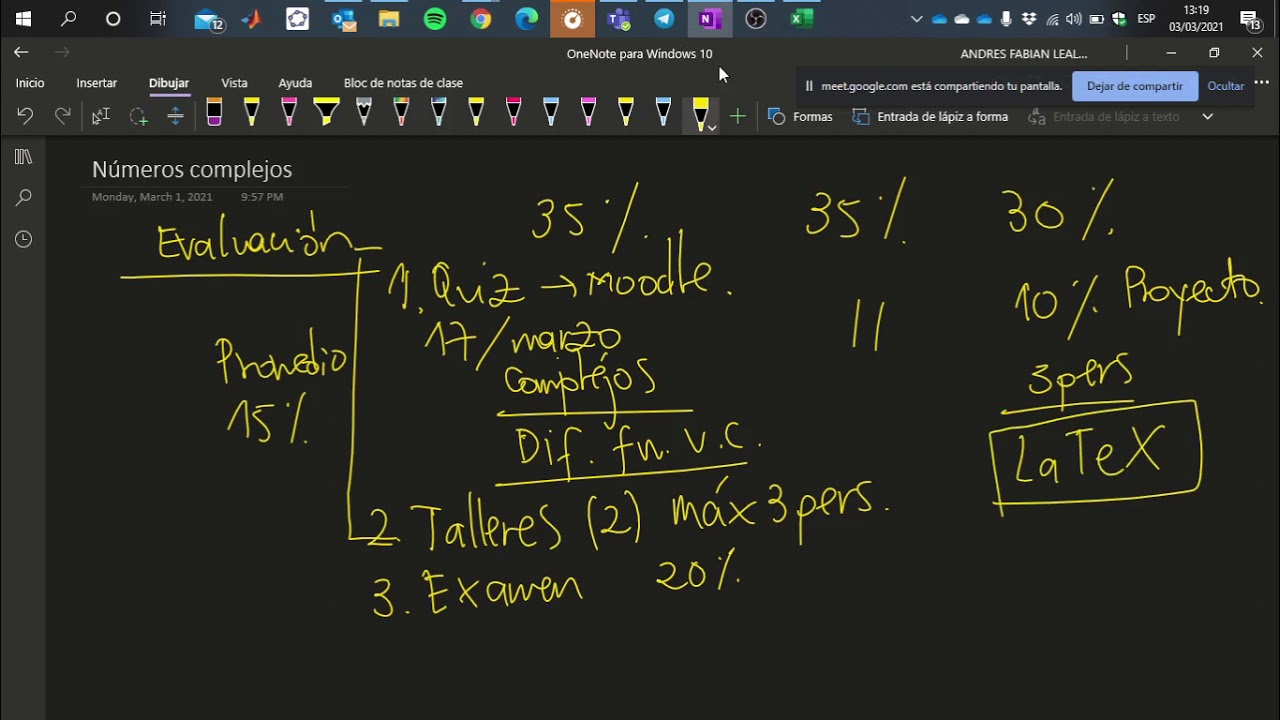 12
ESP
13:19
03/03/2021
13
OneNote para Windows 10
ANDRES FABIAN LEAL...
Inicio
Insertar
Dibujar
Vista
Ayuda
Bloc de notas de clase
meet.google.com está compartiendo tu pantalla.
Dejar de compartir
Ocultar
Formas
Entrada de lápiz a forma
Entrada de lápiz a texto
Números complejos
Monday, March 1, 2021 9:57 PM
35% 35% 30%
Evaluación
1. Quiz → Moodle.
10% Proyecto.
17/marzo
||
Promedio
Complejos
3 pers
15%
Dif. fn. V.C.
LaTeX
2 Talleres (2) máx 3 pers.
3. Examen 20%